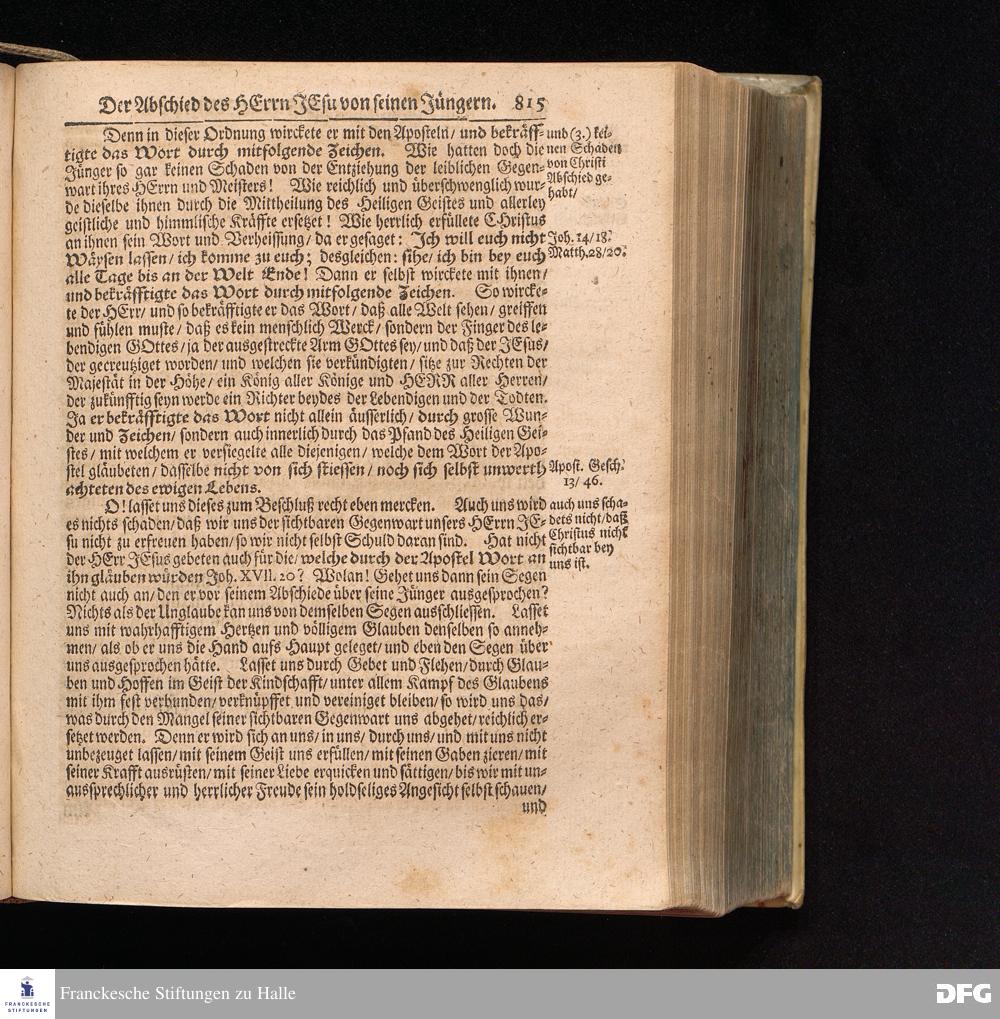 Der Abschied des HErrn JEsu von seinen Jüngern. 815
Denn in dieser Ordnung wirckete er mit den Aposteln/ und bekräff-
tigte das Wort durch mitfolgende Zeichen. Wie hatten doch die
Jünger so gar keinen Schaden von der Entziehung der leiblichen Gegen-
wart ihres HErrn und Meisters! Wie reichlich und überschwenglich wur-
de dieselbe ihnen durch die Mittheilung des Heiligen Geistes und allerley
geistliche und himmlische Kräffte ersetzet! Wie herrlich erfüllete CHristus
an ihnen sein Wort und Verheissung/ da er gesaget: Ich will euch nicht
Wäysen lassen/ ich komme zu euch; desgleichen: sihe/ ich bin bey euch
alle Tage bis an der Welt Ende! Dann er selbst wirckete mit ihnen/
und bekräfftigte das Wort durch mitfolgende Zeichen. So wircke-
te der HErr/ und so bekräfftigte er das Wort/ daß alle Welt sehen/ greiffen
und fühlen muste/ daß es kein menschlich Werck/ sondern der Finger des le-
bendigen GOttes/ ja der ausgestreckte Arm GOttes sey/ und daß der JEsus/
der gecreutziget worden/ und welchen sie verkündigten/ sitze zur Rechten der
Majestät in der Höhe/ ein König aller Könige und HERR aller Herren/
der zukünfftig seyn werde ein Richter beydes der Lebendigen und der Todten.
Ja er bekräfftigte das Wort nicht allein äusserlich/ durch grosse Wun-
der und Zeichen/ sondern auch innerlich durch das Pfand des Heiligen Gei-
stes/ mit welchem er versiegelte alle diejenigen/ welche dem Wort der Apo-
stel gläubeten/ dasselbe nicht von sich stiessen/ noch sich selbst unwerth
achteten des ewigen Lebens.
O! lasset uns dieses zum Beschluß recht eben mercken. Auch uns wird
es nichts schaden/ daß wir uns der sichtbaren Gegenwart unsers HErrn JE-
su nicht zu erfreuen haben/ so wir nicht selbst Schuld daran sind. Hat nicht
der HErr JEsus gebeten auch für die/ welche durch der Apostel Wort an
ihn gläuben würden Joh. XVII. 20? Wolan! Gehet uns dann sein Segen
nicht auch an/ den er vor seinem Abschiede über seine Jünger ausgesprochen?
Nichts als der Unglaube kan uns von demselben Segen ausschliessen. Lasset
uns mit wahrhafftigem Hertzen und völligem Glauben denselben so anneh-
men/ als ob er uns die Hand aufs Haupt geleget/ und eben den Segen über
uns ausgesprochen hätte. Lasset uns durch Gebet und Flehen/ durch Glau-
ben und Hoffen im Geist der Kindschafft/ unter allem Kampf des Glaubens
mit ihm fest verbunden/ verknüpffet und vereiniget bleiben/ so wird uns das/
was durch den Mangel seiner sichtbaren Gegenwart uns abgehet/ reichlich er-
setzet werden. Denn er wird sich an uns/ in uns/ durch uns/ und mit uns nicht
unbezeuget lassen/ mit seinem Geist uns erfüllen/ mit seinen Gaben zieren/ mit
seiner Krafft ausrüsten/ mit seiner Liebe erquicken und sättigen/ bis wir mit un-
aussprechlicher und herrlicher Freude sein holdseliges Angesicht selbst schauen/
und
und (3.) kei-
nen Schaden
von Christi
Abschied ge-
habt/
Joh. 14/18.
Matth. 28/20.
Apost. Gesch.
13/ 46.
auch uns scha-
dets nicht/ daß
Christus nicht
sichtbar bey
uns ist.
FRANCKESCHE
STIFTUNGEN
Franckesche Stiftungen zu Halle
DFG